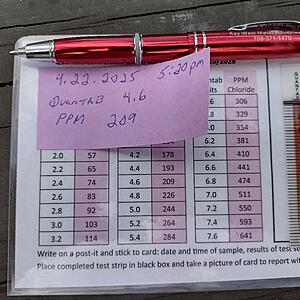 Key West Metal Industries
708-371-1470
/2026
4.22.2025 5:20pm
QUANTAB 4.6
PPM 209
ntab PPM
its Chloride
.6 306
.8 329
.0 354
.2 381
2.0 57 4.2 178 6.4 410
2.2 65 4.4 193 6.6 441
2.4 74 4.6 209 6.8 474
2.6 83 4.8 226 7.0 511
2.8 92 5.0 244 7.2 550
3.0 103 5.2 264 7.4 593
3.2 114 5.4 284 7.6 641
Write on a post-it and stick to card: date and time of sample, results of test str
Place completed test strip in black box and take a picture of card to report wit